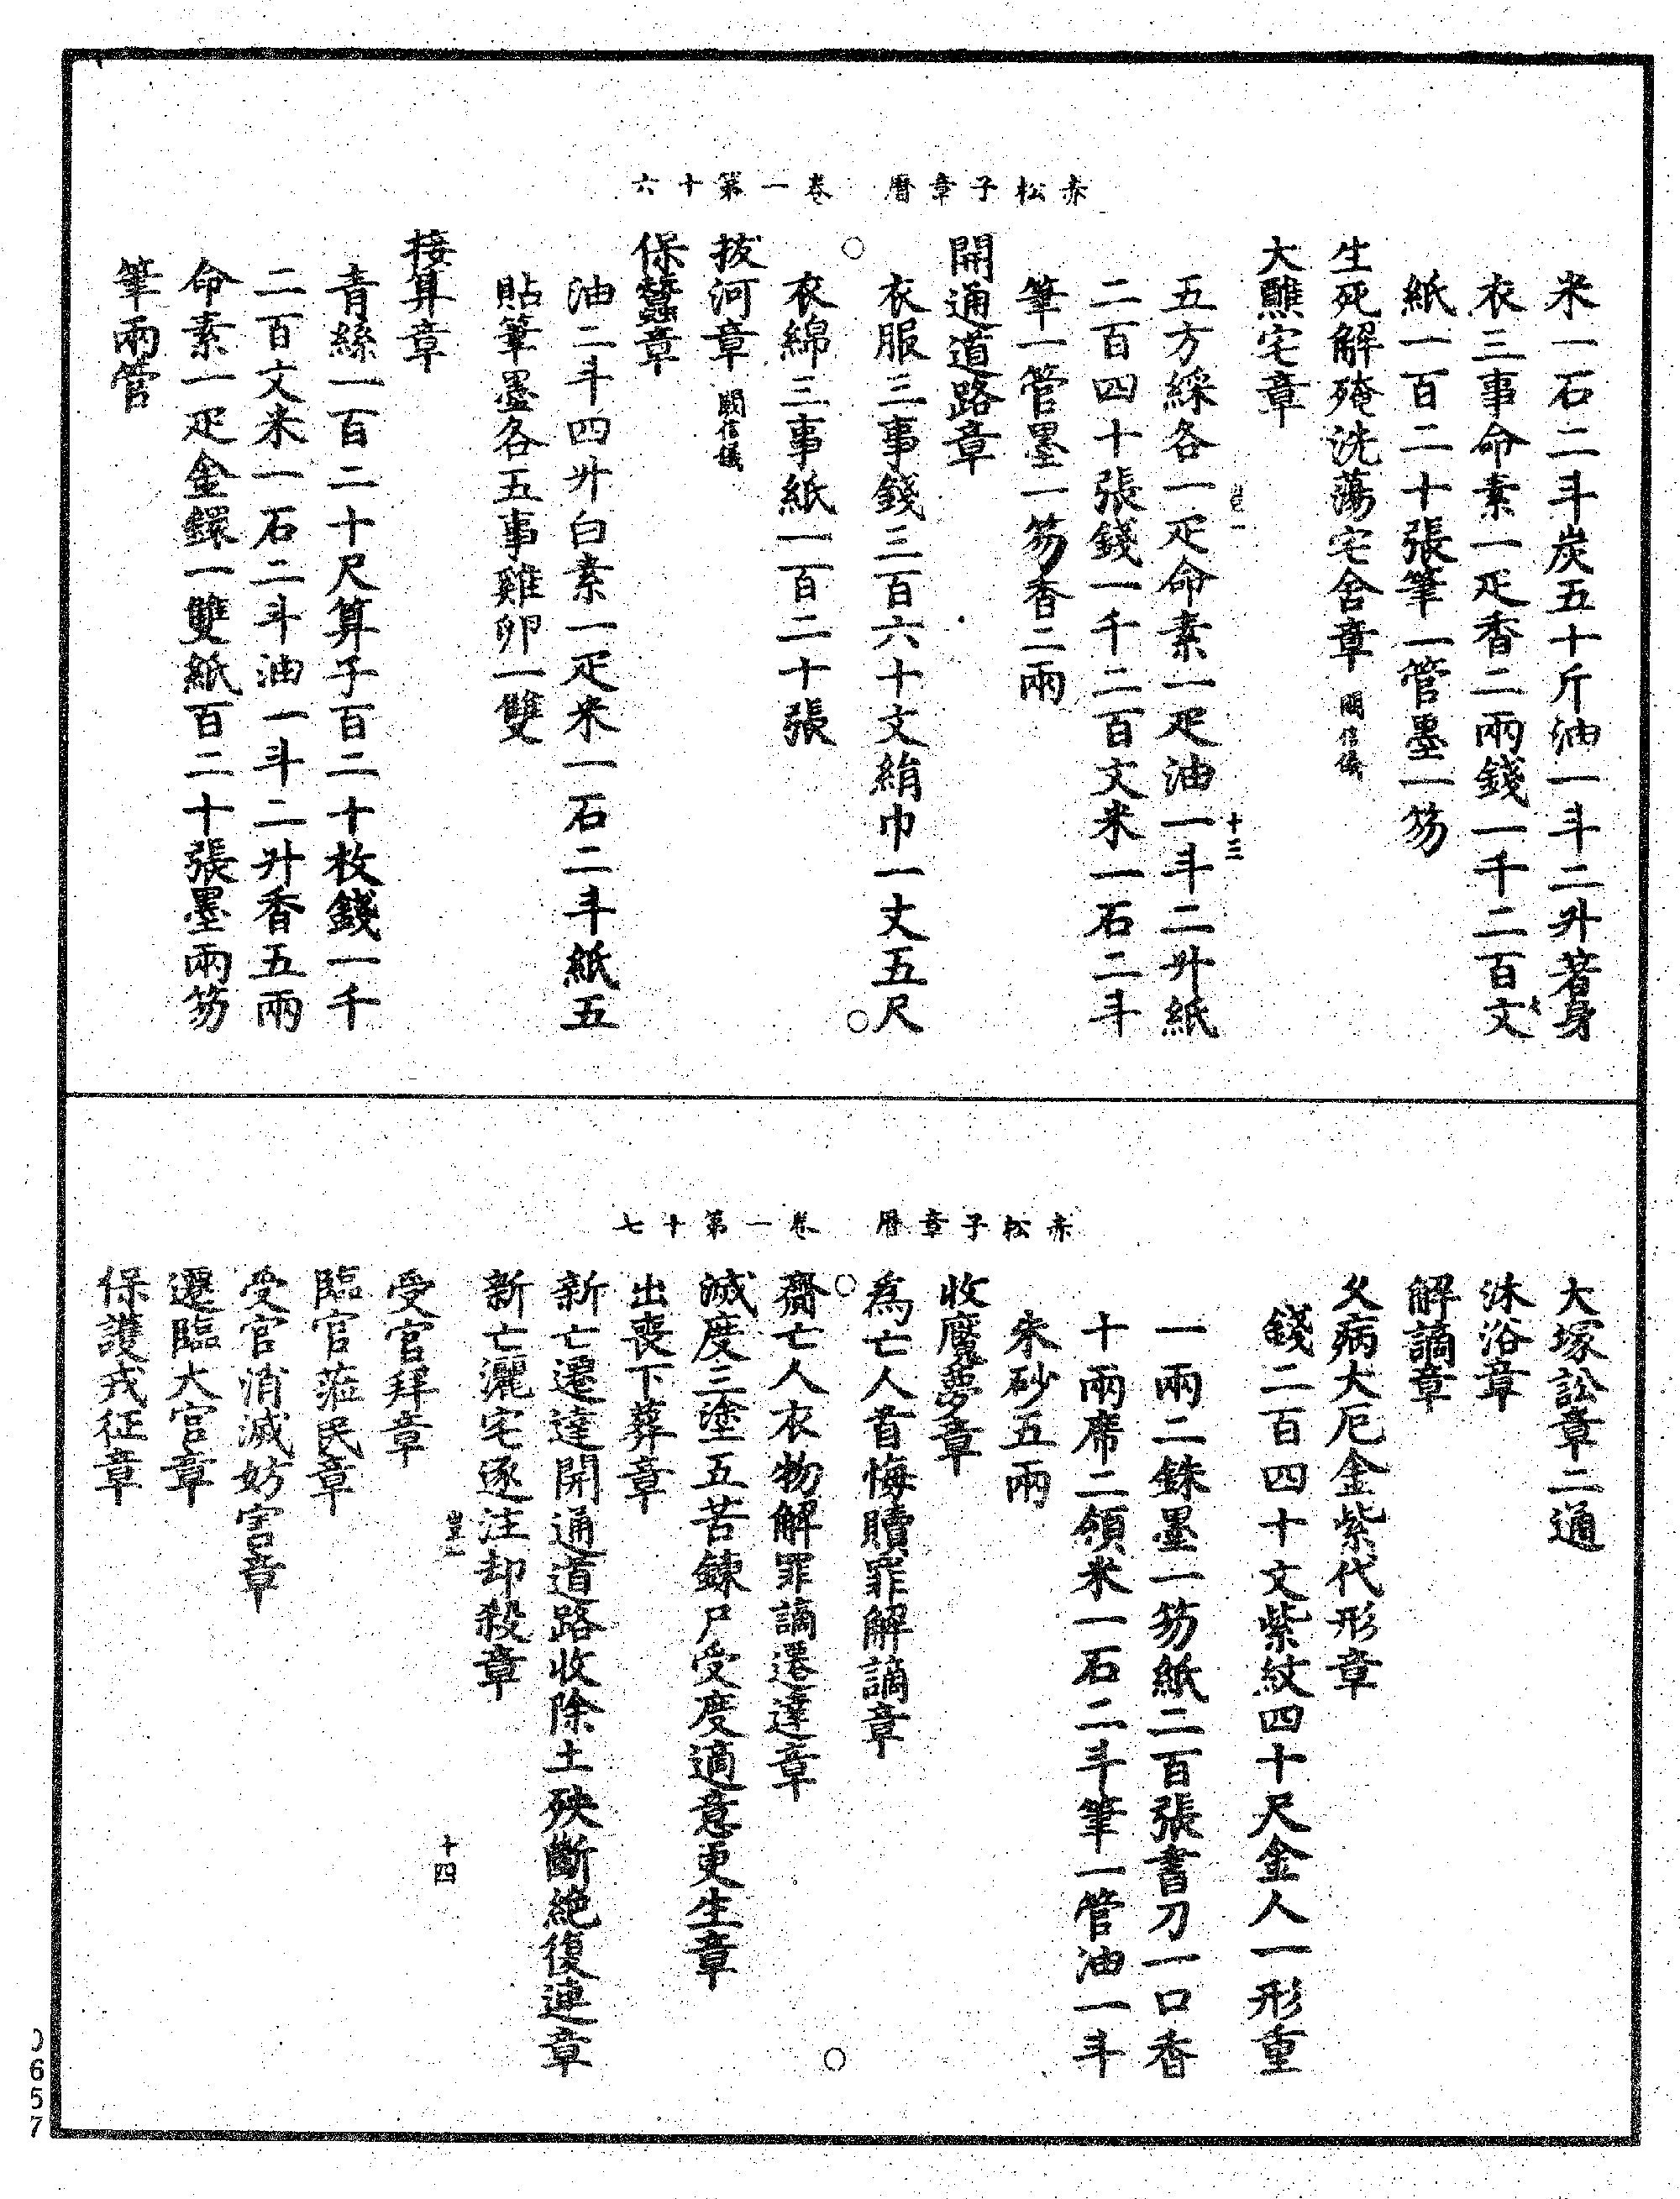 赤松子章曆　卷一第十六
米一石二斗炭五十斤油一斗二升著身
衣三事命素一疋香二兩錢一千二百文
紙一百二十張筆一管墨一笏
生死解殗洗蕩宅舍章 闕信儀
大醮宅章
十三
五方綵各一疋命素一疋油一斗二升紙
二百四十張錢一千二百文米一石二斗
筆一管墨一笏香二兩
開通道路章
衣服三事錢三百六十文絹巾一丈五尺
衣綿三事紙一百二十張
拔河章 闕信儀
保蠶章
油二斗四升白素一疋米一石二斗紙五
貼筆墨各五事雞卵一雙
接算章
青絲一百二十尺算子百二十枚錢一千
二百文米一石二斗油一斗二升香五兩
命素一疋金鐶一雙紙百二十張墨兩笏
筆兩管
赤松子章曆　卷一第十七
大塚訟章二通
沐浴章
解謫章
久病大厄金紫代形章
錢二百四十文紫紋四十尺金人一形重
一兩二銖墨一笏紙二百張書刀一口香
十兩席二領米一石二斗筆一管油一斗
朱砂五兩
收魘夢章
爲亡人首悔贖罪解謫章
齋亡人衣物解罪謫遷達章
滅度三塗五苦鍊尸受度適意更生章
出喪下葬章
新亡遷達開通道路收除土殃斷絕復連章
新亡灑宅逐注却殺章
十四
受官拜章
臨官蒞民章
受官消滅妨害章
遷臨大官章
保護戎征章
0657